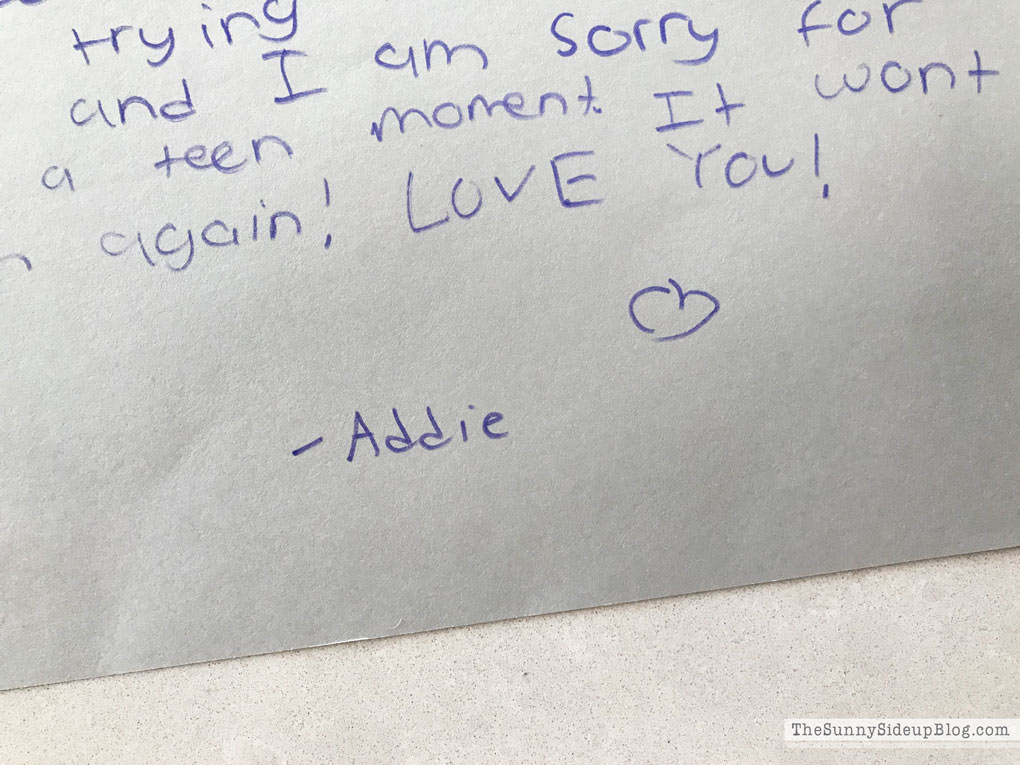 trying
and I am sorry for
a teen moment. It wont
again! LOVE YOU!
- Addie
TheSunnySideupBlog.com